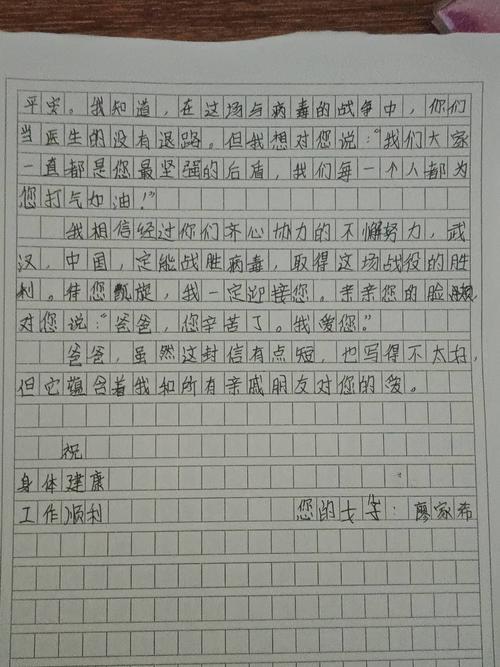 平安。我知道，在这场与病毒的战争中，你们
当医生的没有退路。但我想对您说：“我们大家
一直都是您最坚强的后盾，我们每一个人都为
您打气加油！”
我相信经过你们齐心协力的不懈努力，武
汉，中国，定能战胜病毒，取得这场战役的胜
利。待您凯旋，我一定迎接您。亲亲您的脸颊，
对您说：“爸爸，您辛苦了。我爱您。”
爸爸，虽然这封信有点短，也写得不太好，
但它蕴含着我和所有亲戚朋友对您的爱。
祝
身体建康
工作顺利 您的女儿：廖家希